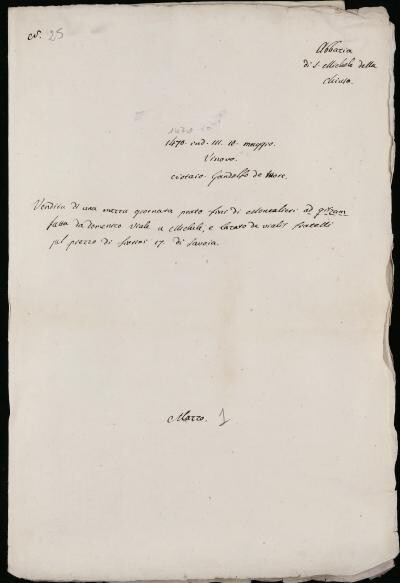 N. 25
Abbazia
di S. Michele della
Chiusa.
1470. ind. III. 10. maggio.
Vinovo.
Notaio. Gandolfo de More.
Vendita di una mezza giornata prato fini di Moncalieri ad
fatta da Domenico Viale a Michele, e Lazaro de Vialis fratelli
pel prezzo di fiorini 17. di Savoia.
Mazzo. 1